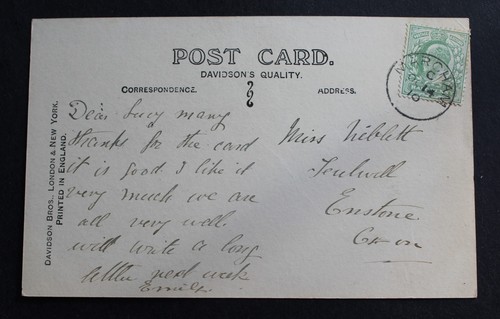 POST CARD.
DAVIDSON'S QUALITY.
CORRESPONDENCE.
ADDRESS.
DAVIDSON BROS., LONDON & NEW YORK.
PRINTED IN ENGLAND.
Dear Lucy many
thanks for the card
it is good I like it
very much we are
all very well.
will write a long
letter next week
Emily.
Miss Niblett
Fulwell
Enstone
Oxon
MARCHAM